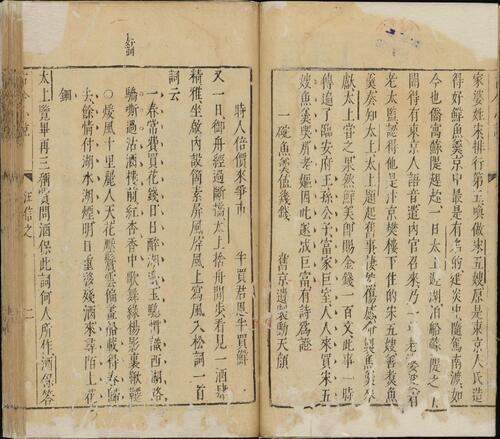 家婆姓宋排行第五喚做宋五嫂原是東京人氏造
得好鮮魚羹京中最是有名的建炎中隨駕南渡如
今也僑寓蘇隄趕趁一日太上遊湖泊船蘇隄之下
聞得有東京人語音遣內官召來乃一年老婆婆有
老太監認得他是汴京樊樓下住的宋五嫂善煮魚
羹奏知太上太上題起舊事悽然傷感命製魚羹來
獻太上嘗之果然鮮美即賜金錢一百文此事一時
傳遍了臨安府王孫公子富家巨室人人來買宋五
嫂魚羹喫那老嫗因此遂成巨富有詩為證
一碗魚羹值幾錢 舊京遺製動天顏
時人倍價來爭市 半買君恩半買鮮
又一日御舟經過斷橋太上捨舟閒步看見一酒肆
精雅坐啟內設箇素屏風屏風上寫風入松詞一首
詞云
一春常費買花錢日日醉湖邊玉驄慣識西湖路
驕嘶過沽酒樓前紅杏香中歌舞綠楊影裏鞦韆
○煖風十里麗人天花壓鬢雲偏畫船載得春歸
去餘情付湖水湖煙明日重携殘酒來尋陌上花
鈿
太上覽畢再三稱賞問酒保此詞何人所作酒保答
古今小說
汪信之
二